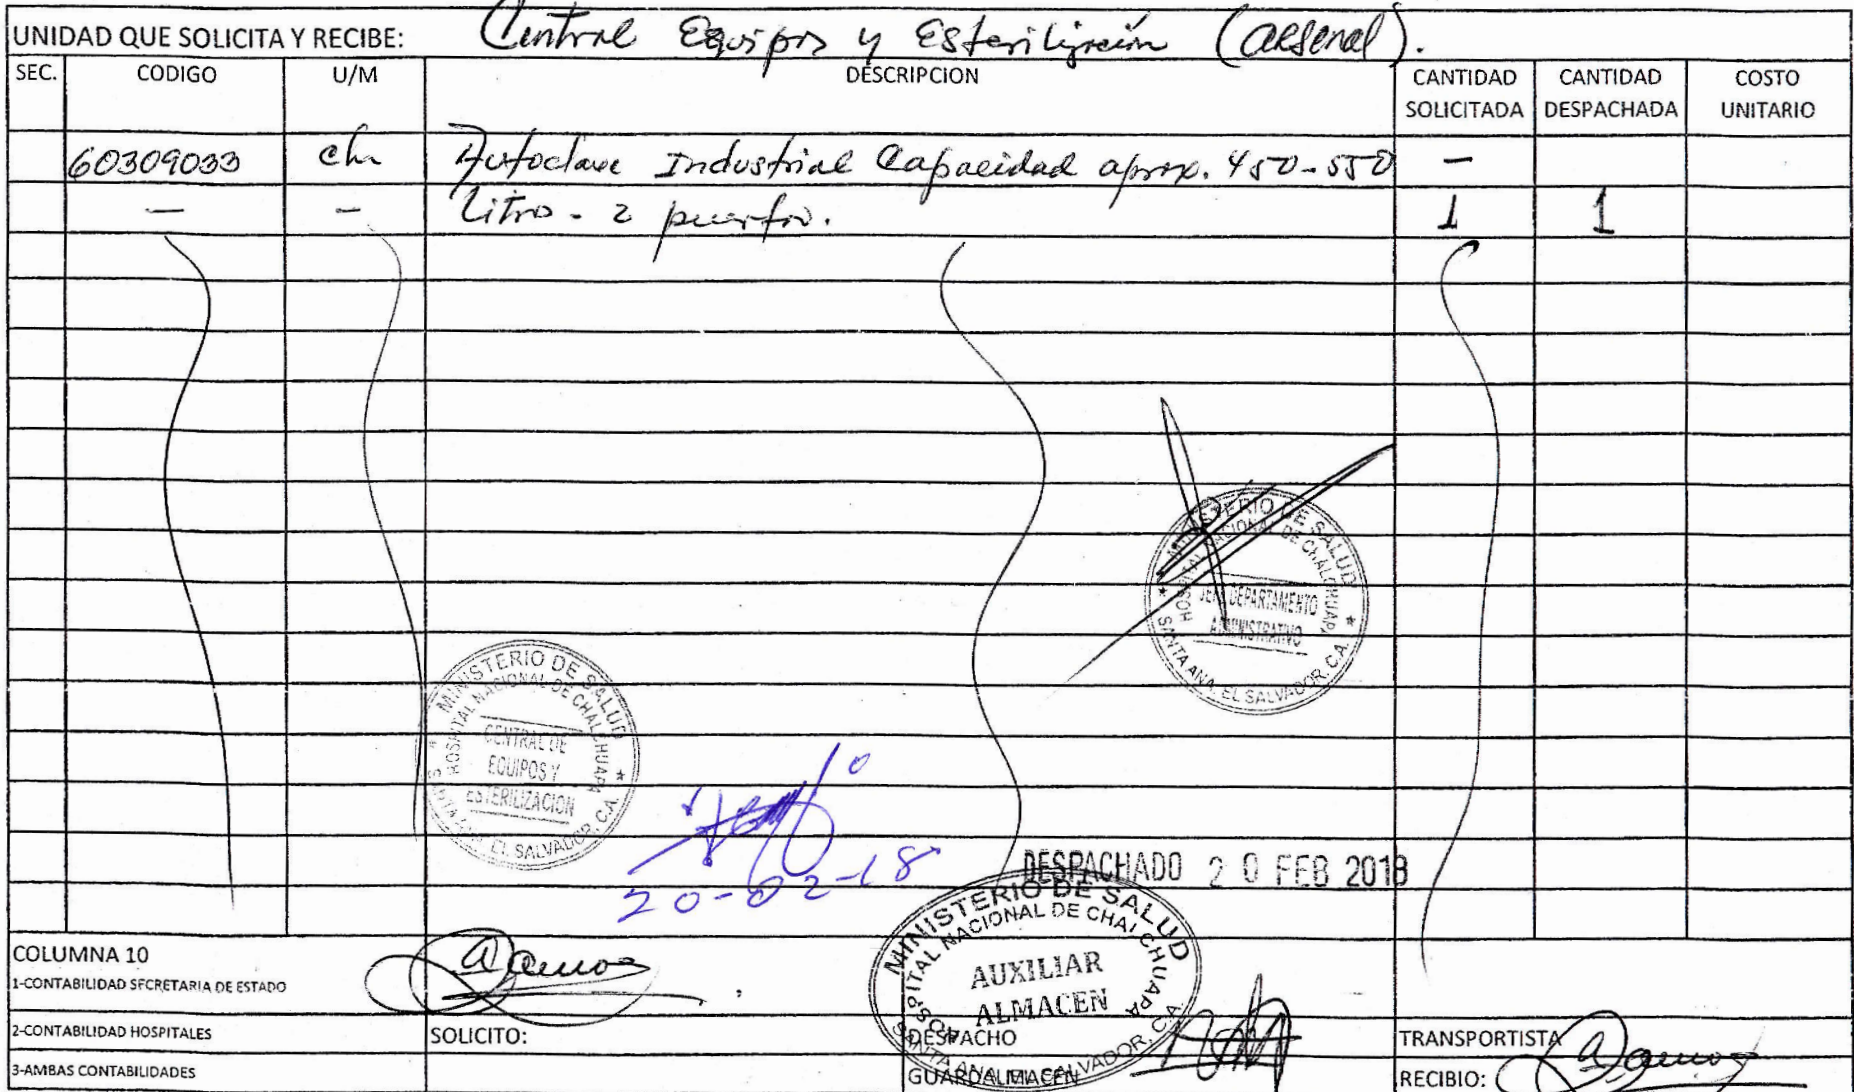 UNIDAD QUE SOLICITA Y RECIBE: Central Equipos y Esterilización (arsenal).
SEC. CODIGO U/M DESCRIPCION CANTIDAD SOLICITADA CANTIDAD DESPACHADA COSTO UNITARIO
60309033 c/u Autoclave Industrial Capacidad aprox. 450-550 —
— - Litros - 2 puertas. 1 1
MINISTERIO DE SALUD
HOSPITAL NACIONAL DE CHALCHUAPA
JEFE DEPARTAMENTO
ADMINISTRATIVO
SANTA ANA, EL SALVADOR, C.A.
MINISTERIO DE SALUD
HOSPITAL NACIONAL DE CHALCHUAPA
CENTRAL DE
EQUIPOS Y
ESTERILIZACION
SANTA ANA, EL SALVADOR, C.A.
20-02-18
DESPACHADO 20 FEB 2018
MINISTERIO DE SALUD
HOSPITAL NACIONAL DE CHALCHUAPA
AUXILIAR
ALMACEN
SANTA ANA, EL SALVADOR, C.A.
COLUMNA 10
1-CONTABILIDAD SECRETARIA DE ESTADO
2-CONTABILIDAD HOSPITALES SOLICITO: DESPACHO TRANSPORTISTA
3-AMBAS CONTABILIDADES GUARDALMACEN RECIBIO: